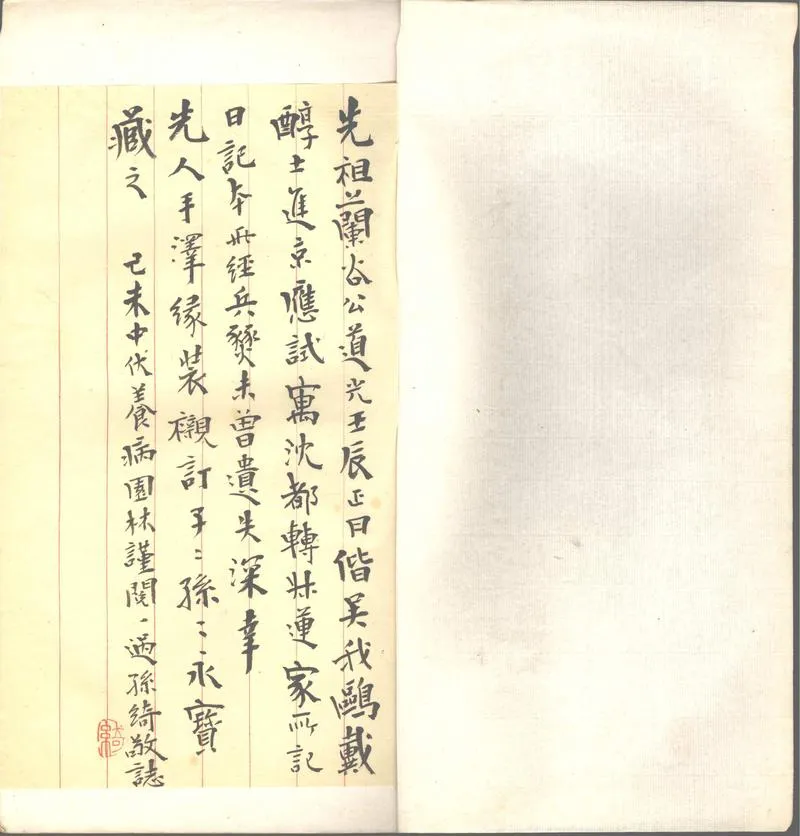 先祖蘭谷公道光壬辰正月偕吴我鷗戴
醇士進京應試寓沈都轉蓮家所記
日記本所經兵燹未曾遺失深幸
先人手澤緣裝襯訂子〻孫〻永寶
藏之 己未中伏養病園林謹閱一過孫綺敬誌